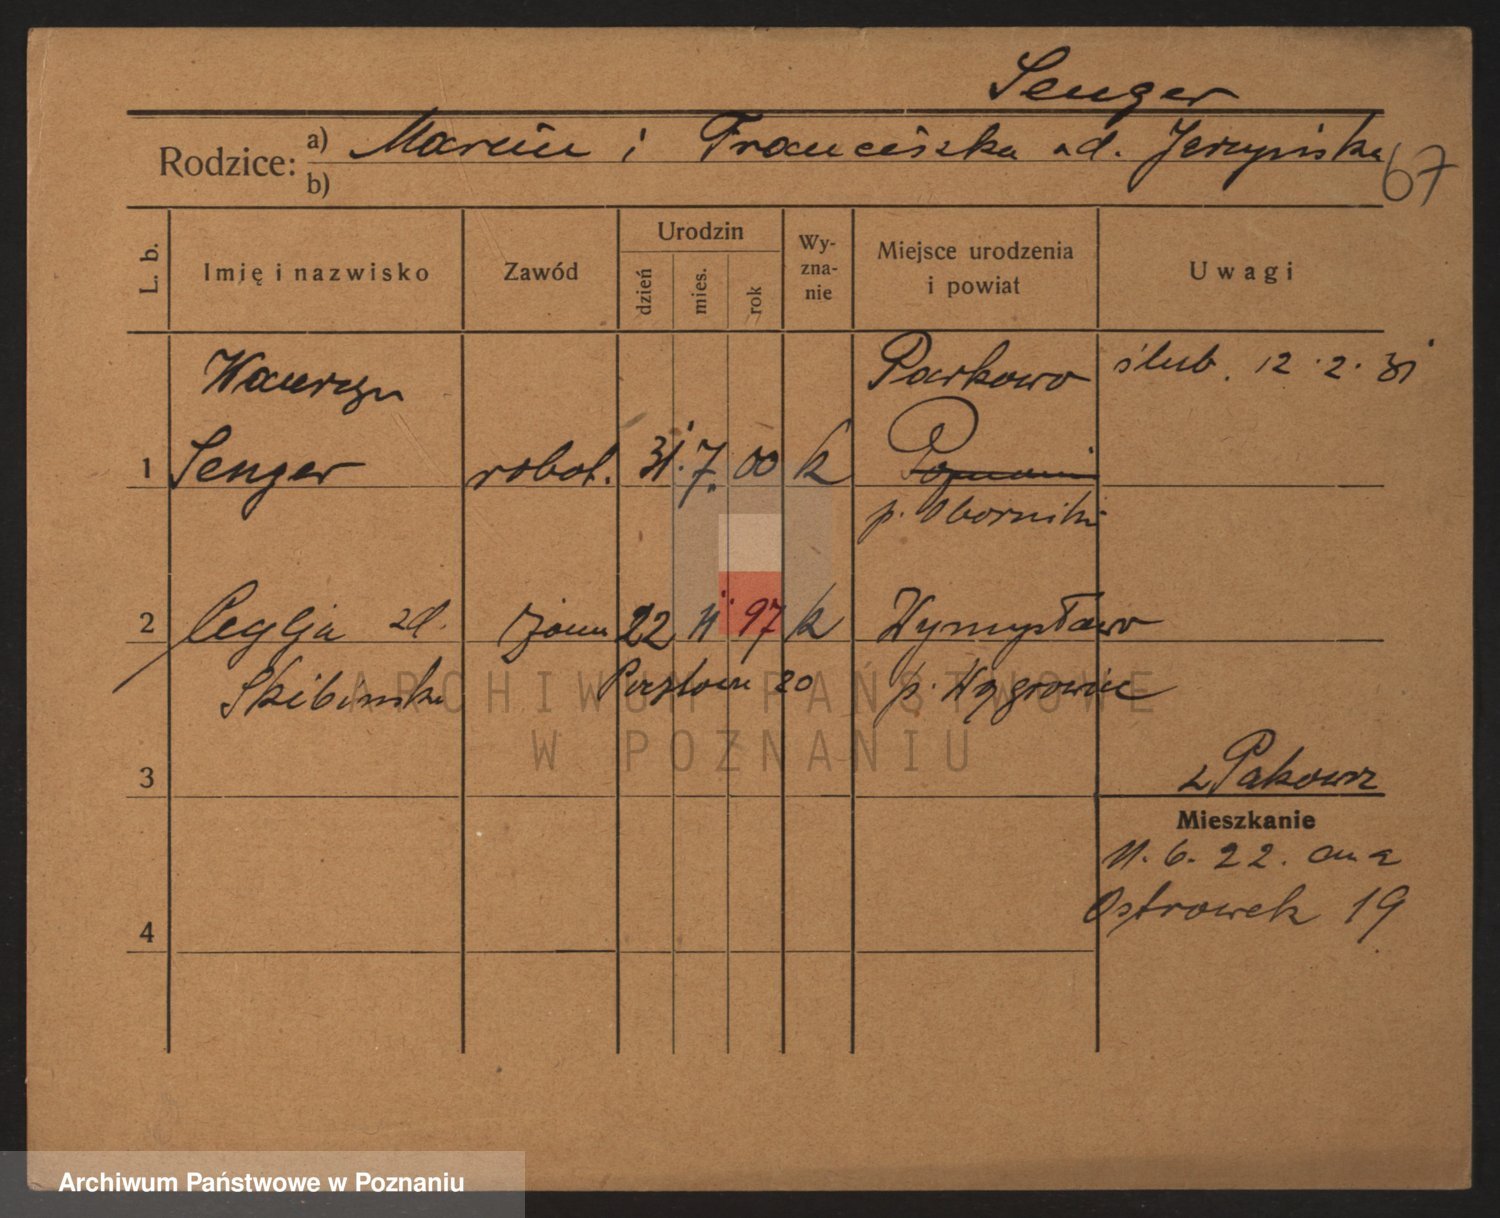 Senger
Rodzice: a) Marcin i Franciszka zd. Jerzyńska
b)
67
L. b.
Imię i nazwisko
Zawód
Urodzin
dzień
mies.
rok
Wy-
zna-
nie
Miejsce urodzenia
i powiat
Uwagi
Wawrzyn Parkowo ślub. 12.2.31
1 Senger robot. 31. 7. 00 k Poznań
p. Oborniki
2 Ceglja zd. 22 11 97 k Wymysłowo
Skibinska 20 p. Wągrowiec
ARCHIWUM PAŃSTWOWE
W POZNANIU
3
z Pakowsz
Mieszkanie
11.6.22.
Ostrowek 19
4
Archiwum Państwowe w Poznaniu